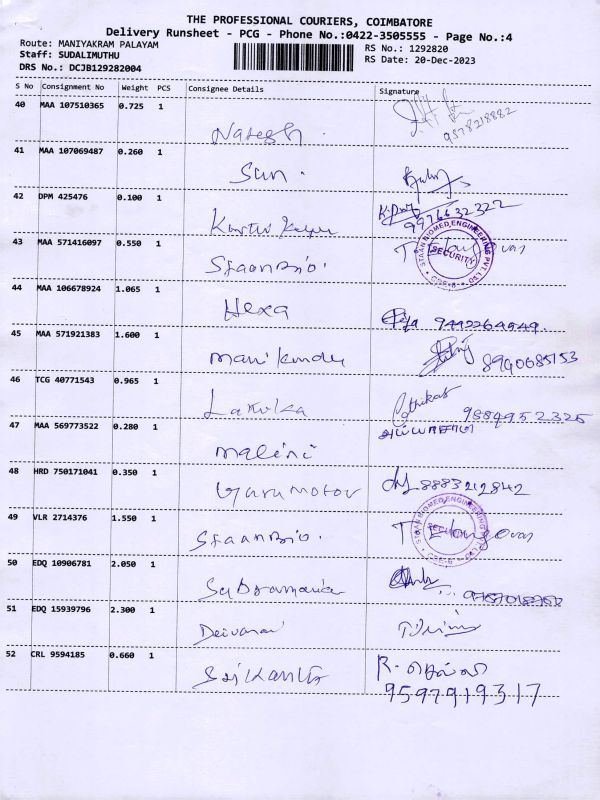 THE PROFESSIONAL COURIERS, COIMBATORE
Delivery Runsheet - PCG - Phone No.:0422-3505555 - Page No.:4
Route: MANIYAKRAM PALAYAM
Staff: SUDALIMUTHU
DRS No.: DCJB129282004
RS No.: 1292820
RS Date: 20-Dec-2023
S No Consignment No Weight PCS Consignee Details Signature
40 MAA 107510365 0.725 1
Naresh 9578218882
41 MAA 107069487 0.260 1
Sun.
42 DPM 425476 0.100 1
9976632322
43 MAA 571416097 0.550 1
StaanBio. STAAN BIOMED ENGINEERING PVT LTD SECURITY
44 MAA 106678924 1.065 1
Hexa
45 MAA 571921383 1.600 1
8940085153
46 TCG 40771543 0.965 1
47 MAA 569773522 0.280 1
malini
48 HRD 750171041 0.350 1
Guru motor 8883212842
49 VLR 2714376 1.550 1
StaanBio.
50 EDQ 10906781 2.050 1
Subramaniam
51 EDQ 15939796 2.300 1
Deivanai
52 CRL 9594185 0.660 1
Srikanth R. செல்வி
9597919317